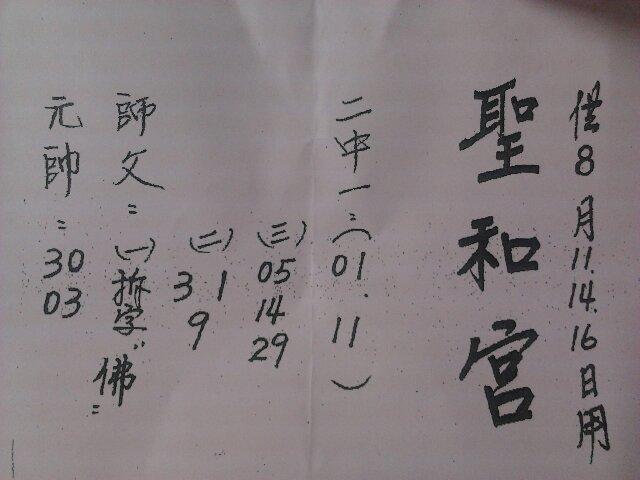 供8月11.14.16日用
聖和宮
二中一:(01.11)
(三) 05 14 29
(二) 31 9
師文:(一)拆字:佛:
元帥:30 03